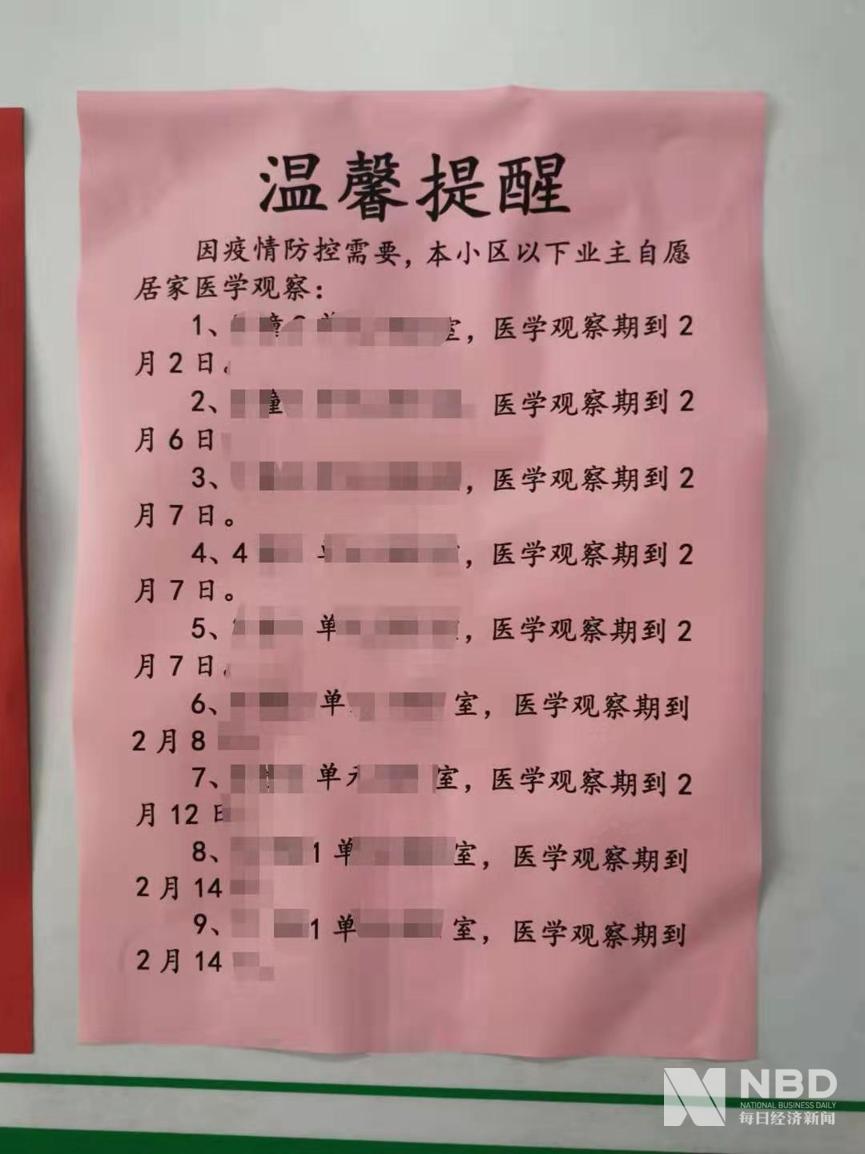 温馨提醒
因疫情防控需要，本小区以下业主自愿
居家医学观察：
1、室，医学观察期到2
月2日。
2、 医学观察期到2
月6日
3、，医学观察期到2
月7日。
4、4 ，医学观察期到2
月7日。
5、 单 ，医学观察期到2
月7日。
6、 单 室，医学观察期到
2月8
7、 单元 室，医学观察期到2
月12日
8、 1单 室，医学观察期到
2月14
9、 1单 室，医学观察期到
2月14
NBD
NATIONAL BUSINESS DAILY
每日经济新闻